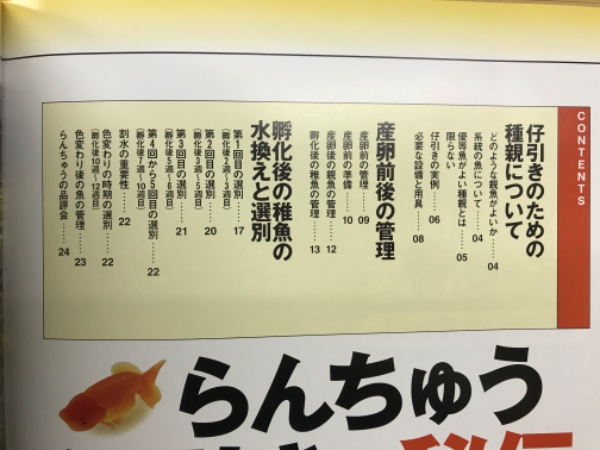 CONTENTS
仔引きのための
種親について
どのような親魚がよいか……04
系統の魚について……04
優等魚がよい種親とは
限らない……05
仔引きの実例……06
必要な設備と用具……08
産卵前後の管理
産卵前の管理……09
産卵前の準備……10
産卵後の親魚の管理……12
孵化後の稚魚の管理……13
孵化後の稚魚の
水換えと選別
第1回目の選別……17
(孵化後2週~3週目)
第2回目の選別……20
(孵化後3週~5週目)
第3回目の選別……21
(孵化後5週~6週目)
第4回から5回目の選別……22
(孵化後7週~10週目)
割水の重要性……22
色変わりの時期の選別……22
(孵化後10週~12週目)
色変わり後の魚の管理……23
らんちゅうの品評会……24
らんちゅう